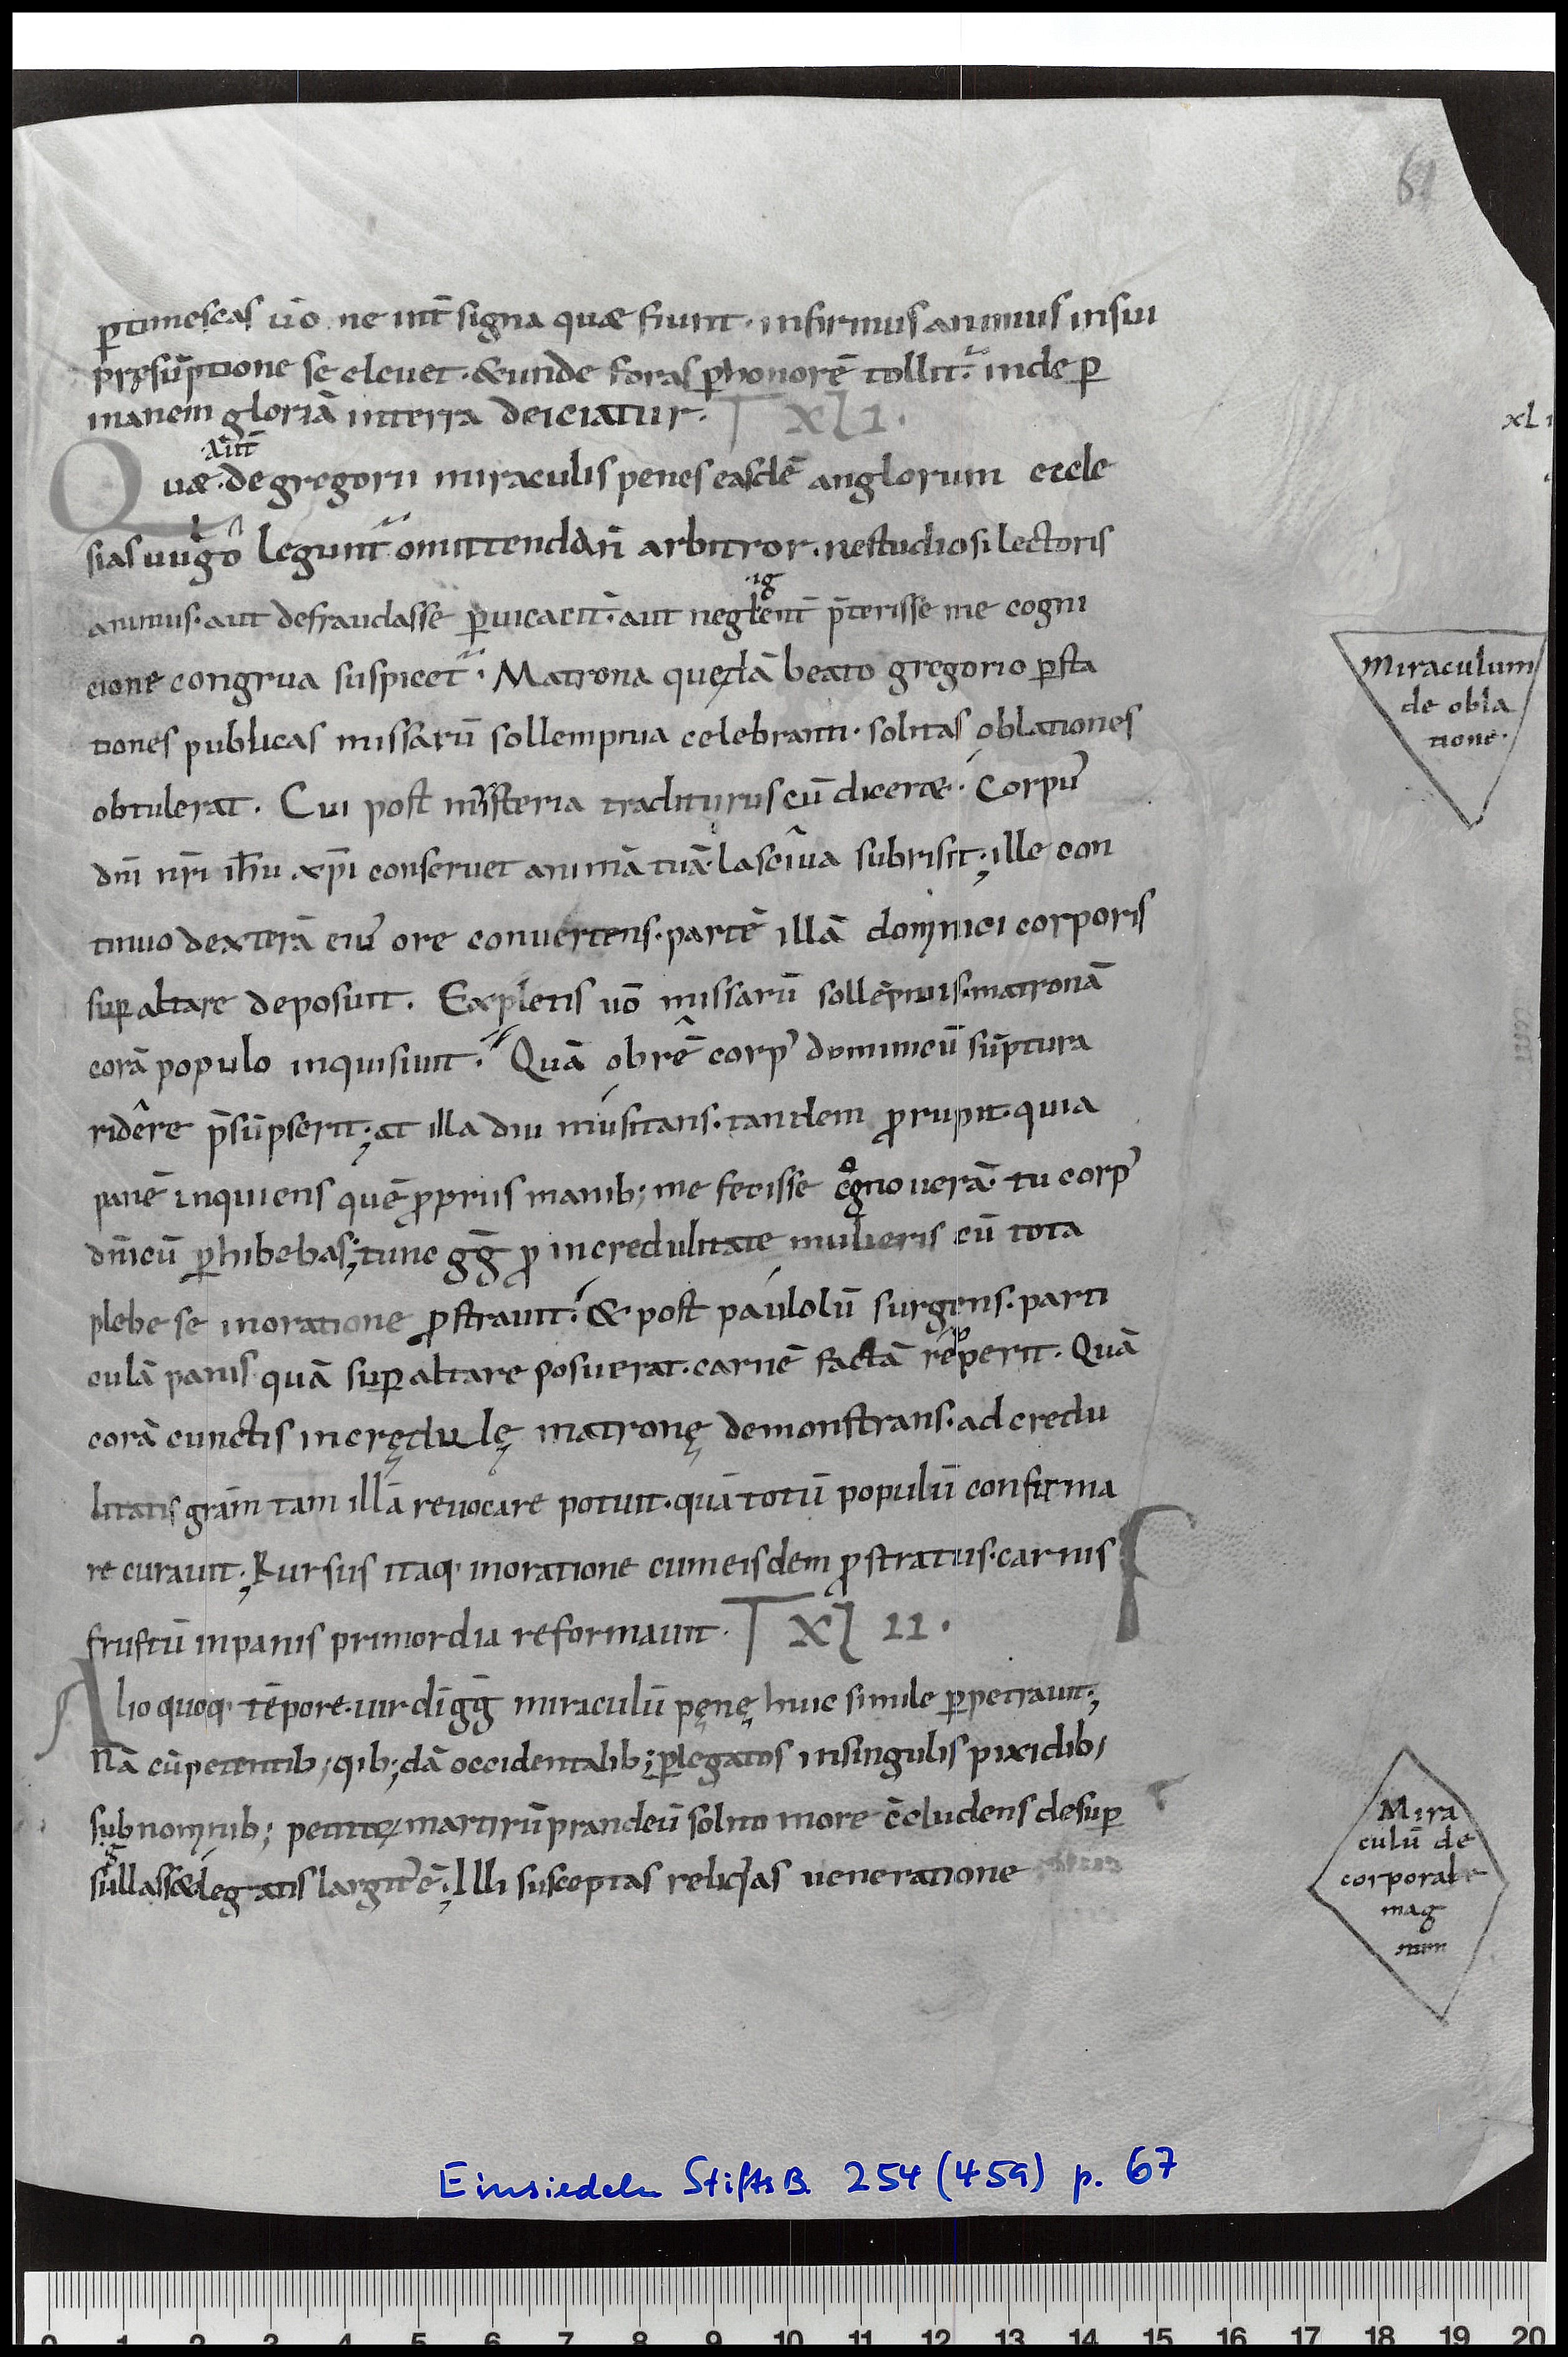 67
ꝑtimescas u̅o ne int̅ signa quæ fiunt· infirmus animus in sui
pręsu̅ptione se eleuet· & unde foras ꝑ honore̅ tollit᷑· inde ꝑ
inanem gloria̅ in terra deiciatur· XLI·
xl i
Quæ ·aut̅· de gregorii miraculis penes easde̅ anglorum eccle
sias uulgo legunt᷑ omittenda n̅ arbitror· ne studiosi lectoris
animus· aut defraudasse ꝑuicacit̅· aut negligent̅ p̅terisse me cogni
cione congrua suspicet᷑· Matrona queda̅ beato gregorio ꝑ sta
tiones publicas missaru̅ sollempnia celebranti· solitas oblationes
Miraculum
de obla
tione·
obtulerat. Cui post misteria traditurus cu̅ diceræt· Corpus
dn̅i nr̅i ih̅u xp̅i conseruet anima̅ tua̅· lasciua subrisit; ille con
tinuo dextera̅ eius ore conuertens· parte̅ illa̅ dominici corporis
suꝑ altare deposuit. Expletis u̅o missaru̅ solle̅pniis· matrona̅
cora̅ populo inquisiuit· Qua̅ ob re̅ corp᷒ dominicu̅ su̅ptura
ridere p̅su̅pserit; at illa diu musitans· tandem ꝓrupit· quia
pane̅ inquiens que̅ ꝓpriis manib; me fecisse cognouera̅· tu corp᷒
dn̅icu̅ ꝑhibebas; tunc gg̅ ꝓ incredulitate mulieris cu̅ tota
plebe se in oratione ꝓstrauit· & post paulolu̅ surgens· parti
cula̅ panis qua̅ suꝑ altare posuerat· carne̅ facta̅ repperit. Qua̅
cora̅ cunctis incrędulę matronę demonstrans· ad credu
litatis gra̅m tam illa̅ reuocare potuit· qua̅ totu̅ populu̅ confirma
re curauit; Rursus itaq· in oratione cum eisdem ꝓstratus· carnis
frustu̅ in panis primordia reformauit· XLII·
Alio quoq· te̅pore· uir di̅ gg̅ miraculu̅ pęnę huic simile ꝑpetrauit;
Na̅ cu̅ petentib; qib;da̅ occidentalib; ꝑ legatos in singulis pixidib;
sub nominib; petitoꝝ martiru̅ prandeu̅ solito more c̅cludens desuꝑ
sigillassæt legatis largit᷒ e̅; Illi susceptas reliq̇as ueneratione
Mira
culu̅ de
corporale
mag
num
Einsiedeln StiftsB. 254 (459) p. 67
0 1 2 3 4 5 6 7 8 9 10 11 12 13 14 15 16 17 18 19 20